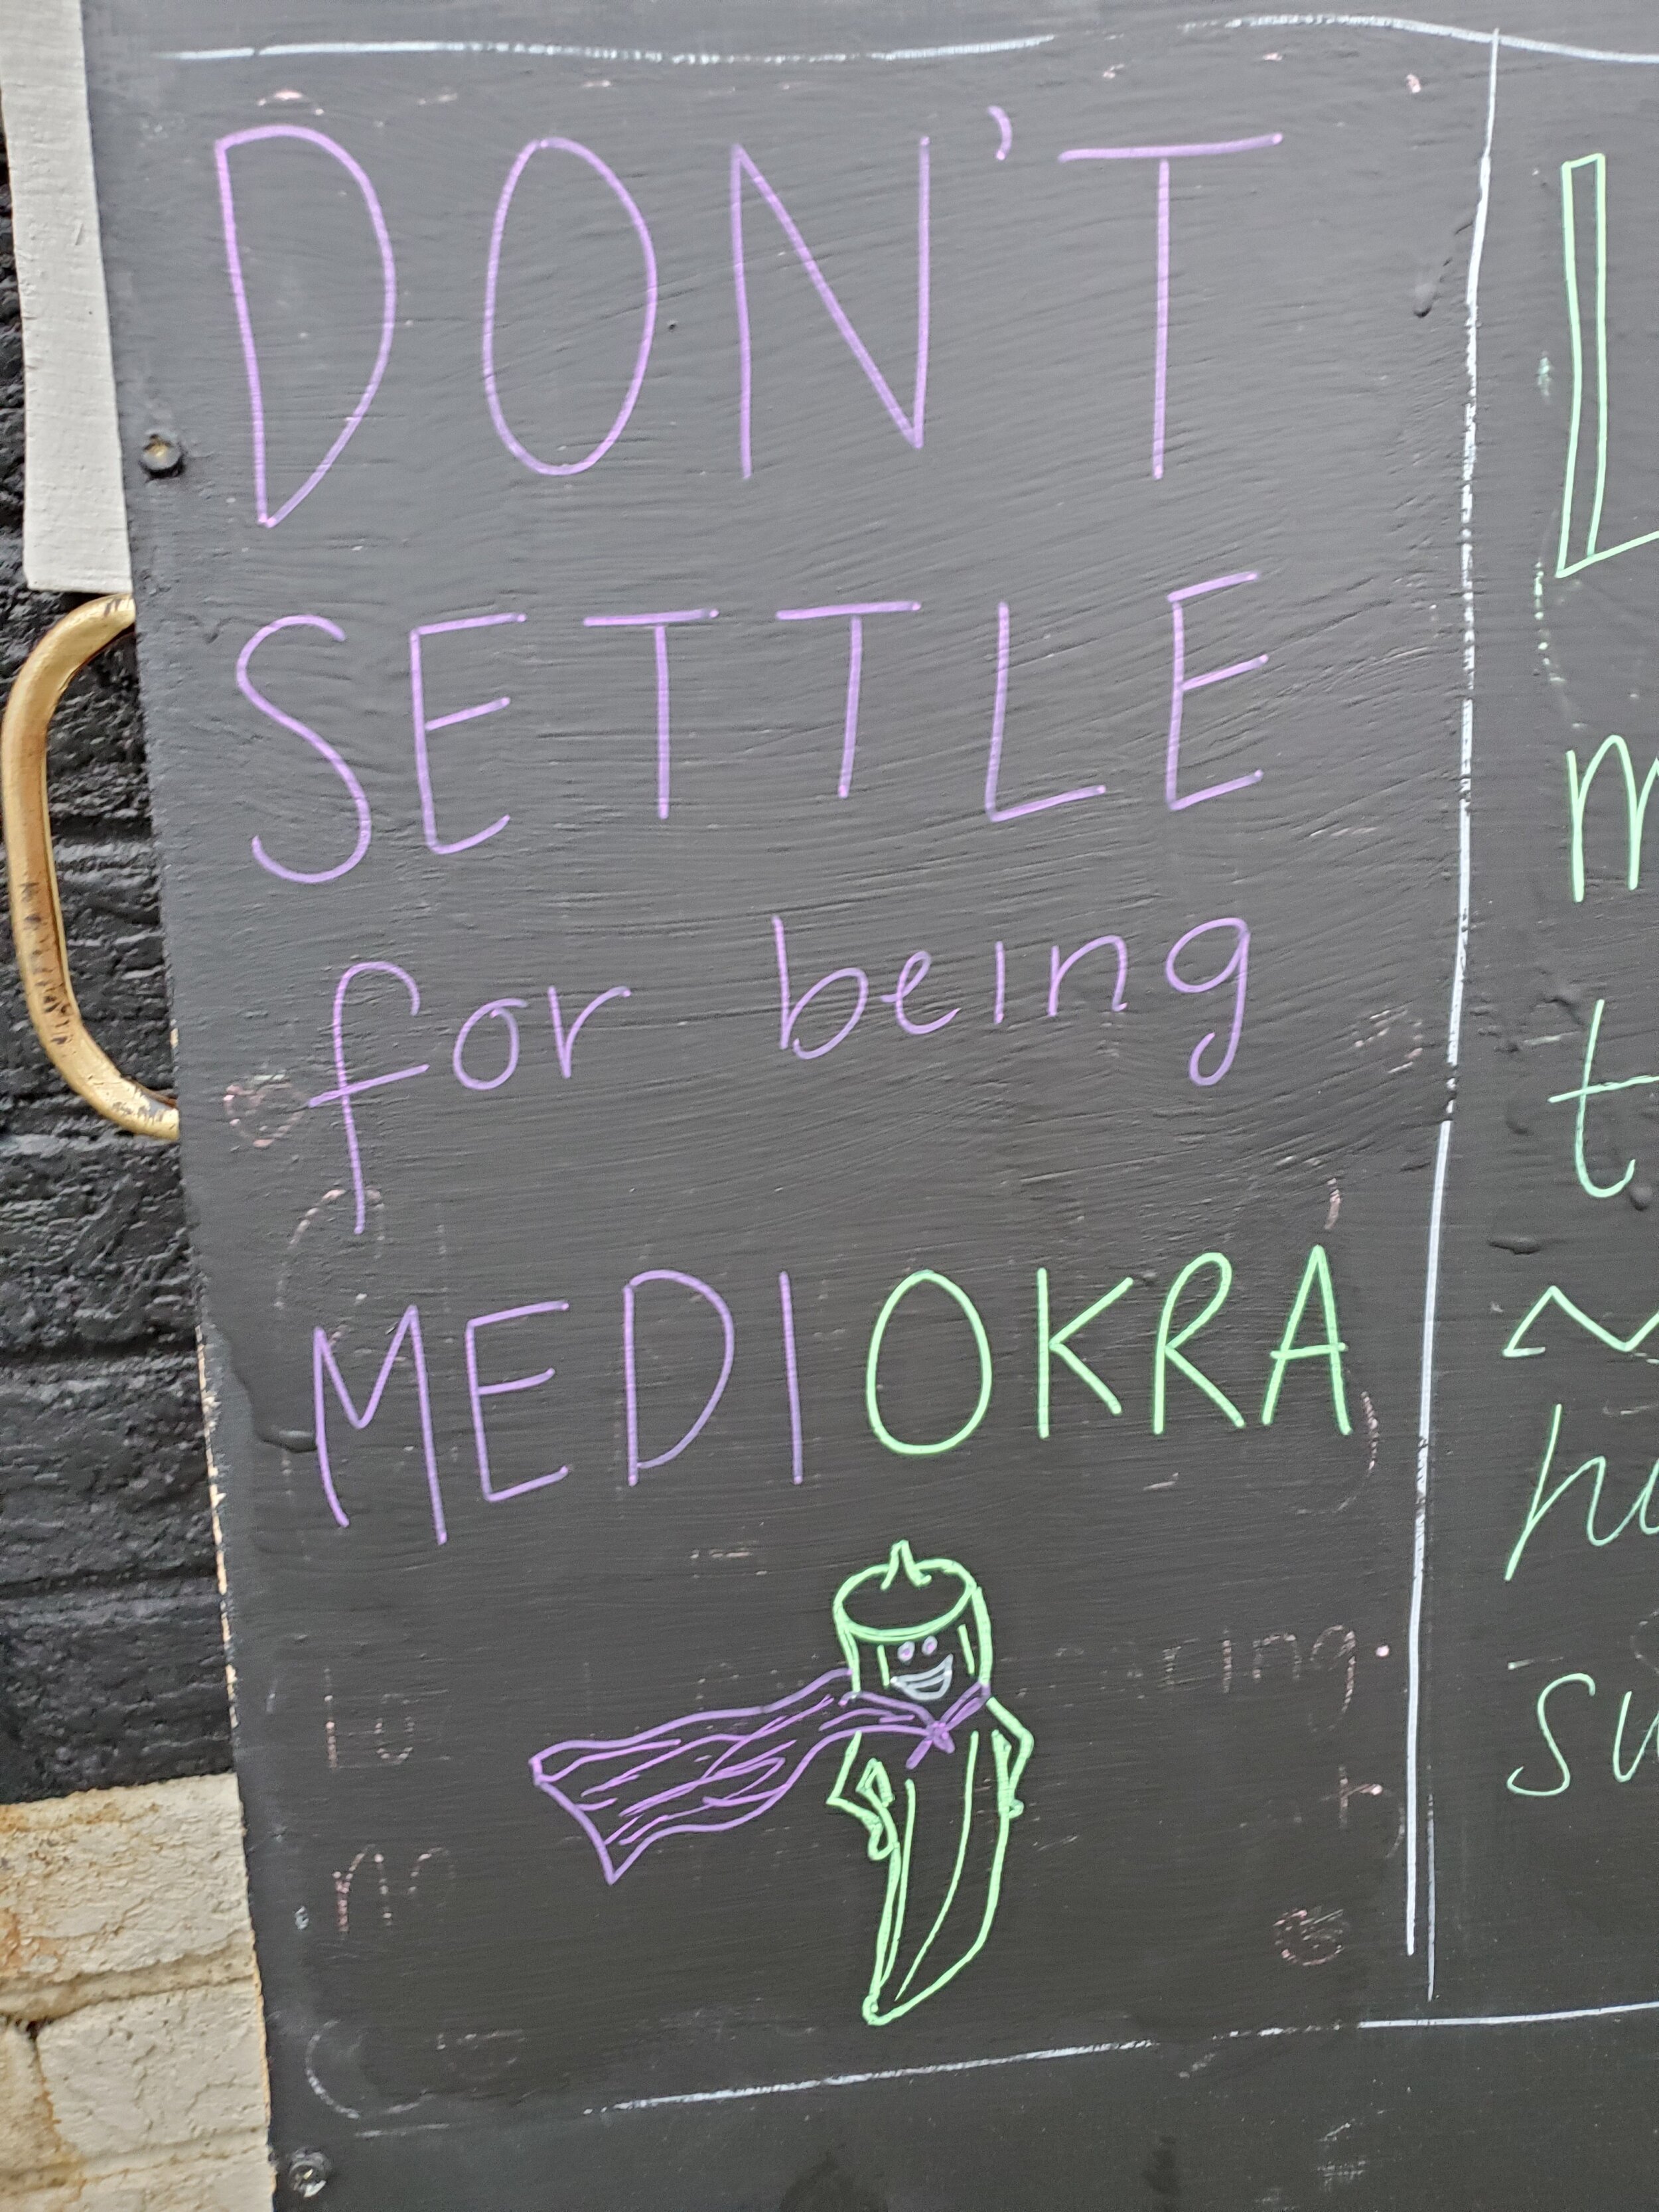 DON'T
SETTLE
for being
MEDIOKRA